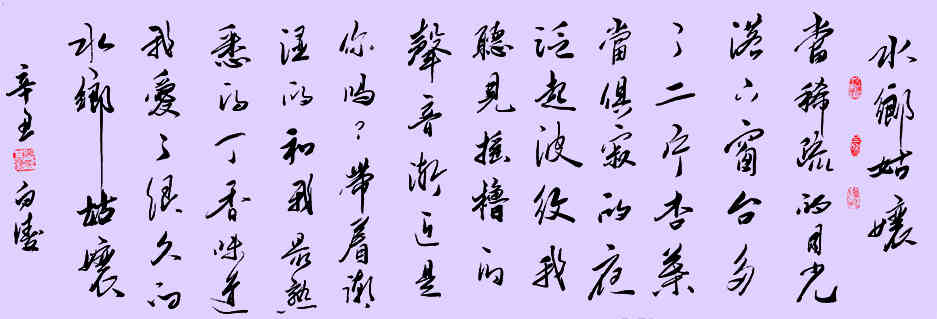 水鄉姑孃
當稀疏的月光
落下窗台多
了二片杏葉
當俱寂的夜
泛起波紋我
聽見搖櫓的
聲音漸近是
你嗎？帶着潮
溼的和我最熟
悉的丁香味道
我愛了很久的
水鄉姑孃
辛丑